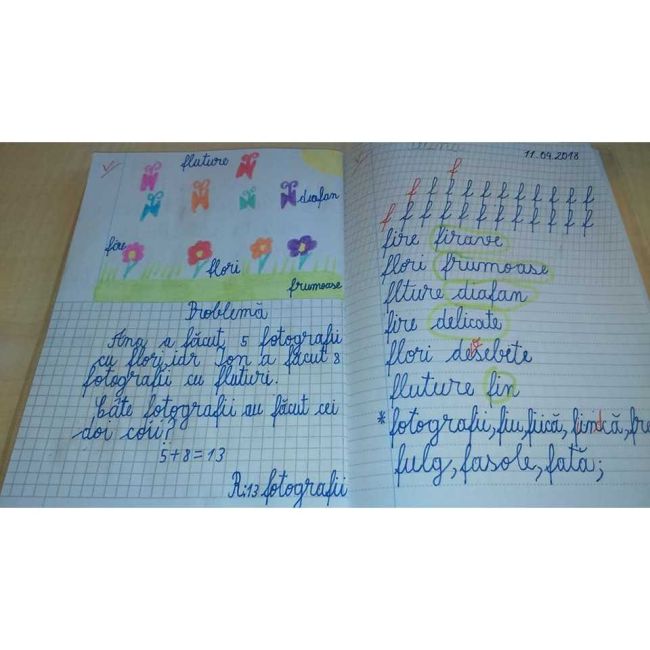 fluture
diafan
fire
flori
frumoase
Problemă
Ana a făcut 5 fotografii
cu flori, iar Ion a făcut 8
fotografii cu fluturi.
Câte fotografii au făcut cei
doi copii?
5+8=13
R:13 fotografii
11.04.2018
f
f f f f f f f f f f
f f f f f f f f f f f f
fire firave
flori frumoase
flture diafan
fire delicate
flori deosebite
fluture fin
*fotografii, fiu, fiică, fiindcă,
fulg, fasole, fată;